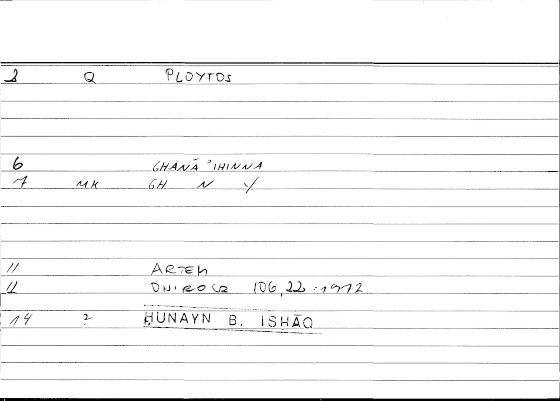 1 Q PLOYTOS
6 GHANĀʾIHINNA
7 MK GH N Y
11 ARTEM
12 ONIROCR 106,22 = 1912
14 2 ḤUNAYN B. ISḤĀQ